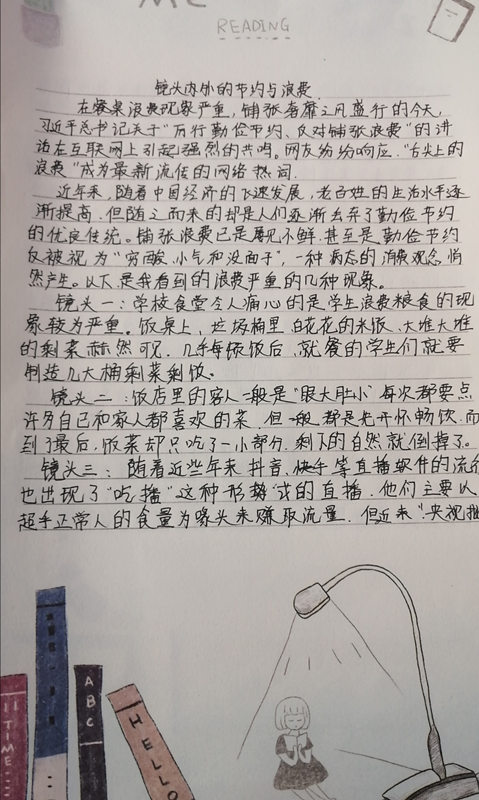 ME
READING
镜头内外的节约与浪费
在餐桌浪费现象严重,铺张奢靡之风盛行的今天,
习近平总书记关于“厉行勤俭节约、反对铺张浪费”的讲
话在互联网上引起强烈的共鸣。网友纷纷响应.“舌尖上的
浪费”成为最新流传的网络热词.
近年来,随着中国经济的飞速发展,老百姓的生活水平逐
渐提高.但随之而来的却是人们逐渐丢弃了勤俭节约
的优良传统。铺张浪费已是屡见不鲜.甚至是勤俭节约
反被视为“穷酸、小气和没面子”,一种病态的消费观念悄
然产生。以下是我看到的浪费严重的几种现象。
镜头一:学校食堂令人痛心的是学生浪费粮食的现
象较为严重。饭桌上,垃圾桶里.白花花的米饭、大堆大堆
的剩菜赫然可见.几乎每顿饭后,就餐的学生们就要
制造几大桶剩菜剩饭。
镜头二:饭店里的客人一般是“眼大肚小”每次都要点
许多自己和家人都喜欢的菜.但一般都是光开怀畅饮.而
到了最后,饭菜却只吃了一小部分.剩下的自然就倒掉了。
镜头三:随着近些年来抖音、快手等直播软件的流行
也出现了“吃播”这种形式的直播.他们主要以
超乎正常人的食量为噱头来赚取流量.但近来“央视批
TIME
ABC
HELLO